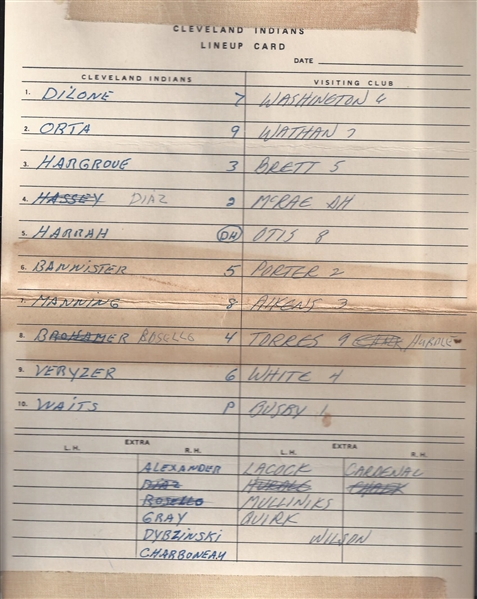 CLEVELAND INDIANS
LINEUP CARD
DATE
CLEVELAND INDIANS VISITING CLUB
1. DILONE 7 WASHINGTON 6
2. ORTA 9 WATHAN 7
3. HARGROVE 3 BRETT 5
4. HASSEY DIAZ 2 McRAE DH
5. HARRAH DH OTIS 8
6. BANNISTER 5 PORTER 2
7. MANNING 8 AIKENS 3
8. BROHAMER ROSELLO 4 TORRES 9 CHALK/HURDLE
9. VERYZER 6 WHITE 4
10. WAITS P BUSBY 1
EXTRA EXTRA
L.H. R.H. L.H. R.H.
ALEXANDER LACOCK CARDENAL
DIAZ HURDLE CHALK
ROSELLO MULLINIKS
GRAY QUIRK
DYBZINSKI WILSON
CHARBONEAU